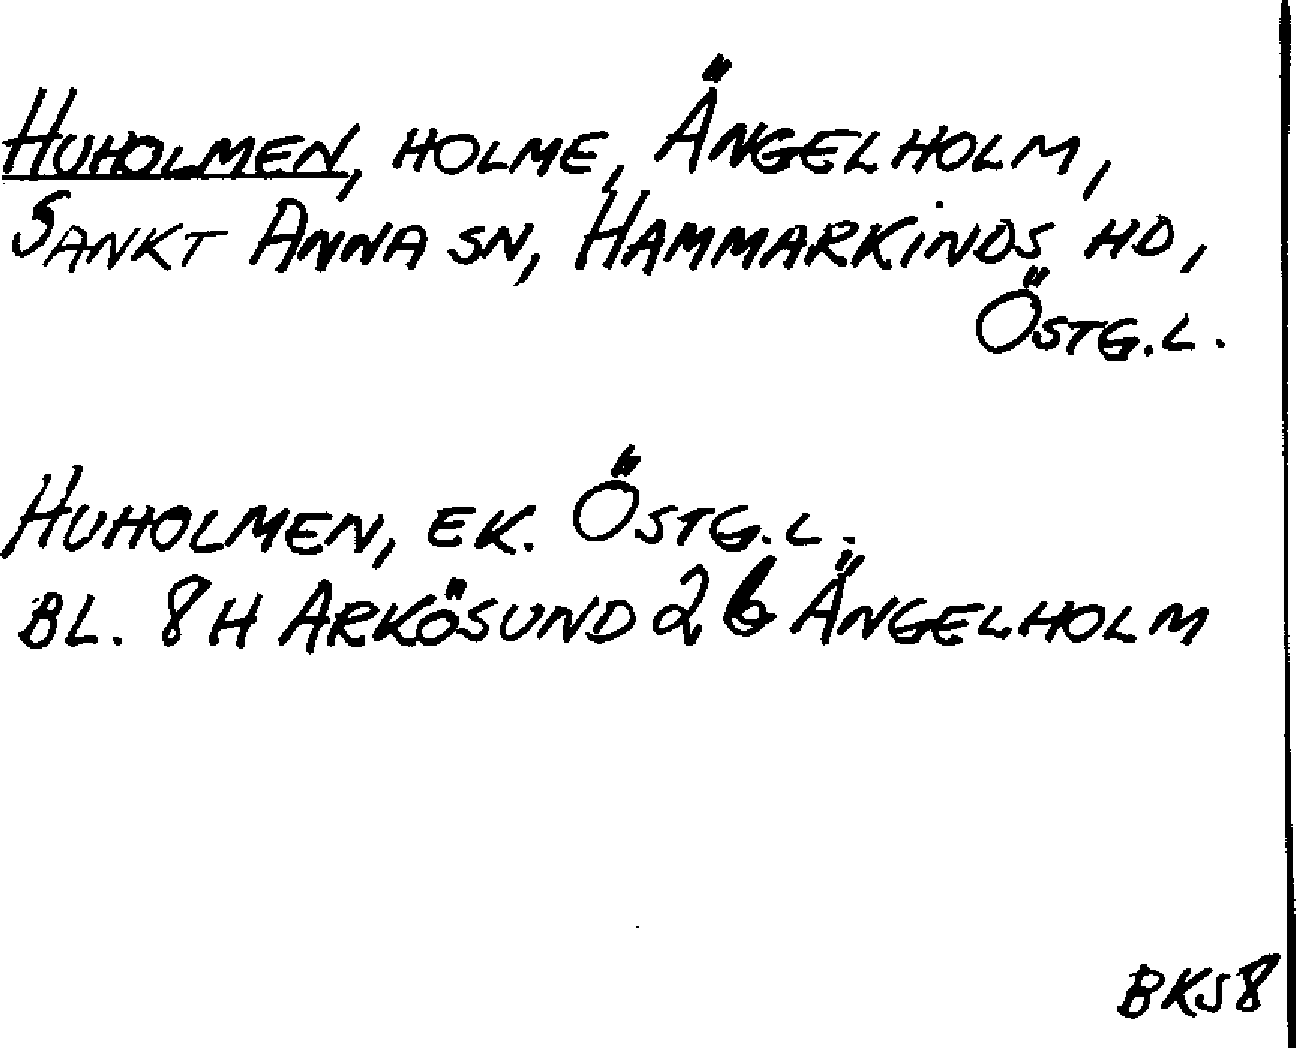 HUHOLMEN, HOLME, ÄNGELHOLM,
SANKT ANNA SN, HAMMARKINDS HD,
ÖSTG.L.
HUHOLMEN, EK. ÖSTG.L.
BL. 8H ARKÖSUND 2b ÄNGELHOLM
BKS8